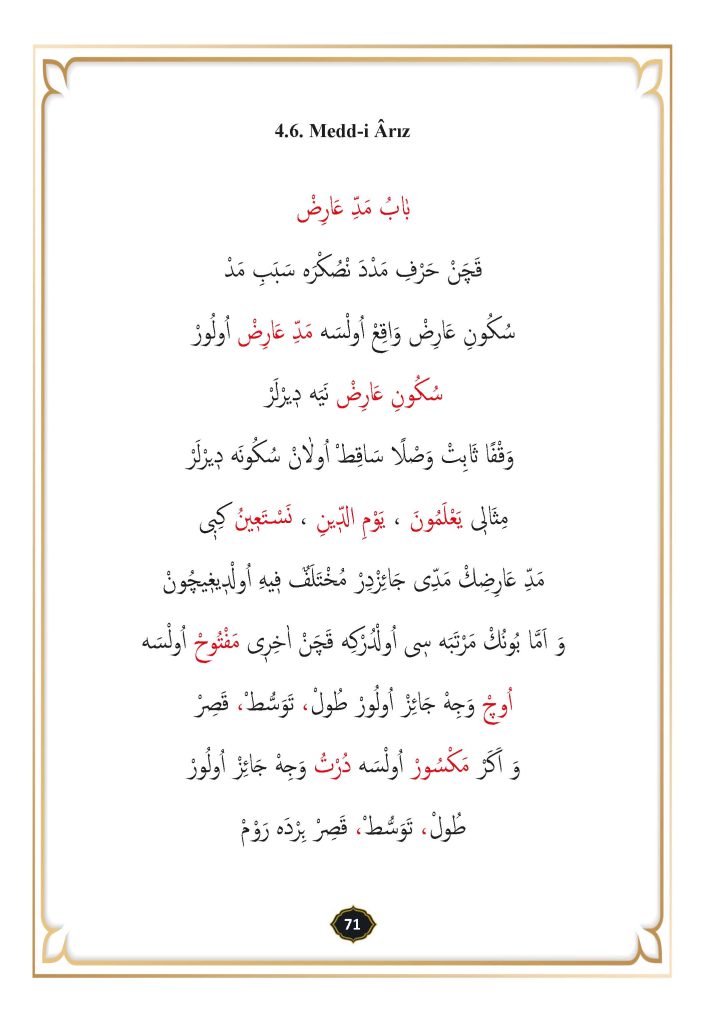 4.6. Medd-i Ârız
بَابُ مَدِّ عَارِضْ
قَچَنْ حَرْفِ مَدْدَ نْصُكْرَه سَبَبِ مَدْ
سُكُونِ عَارِضْ وَاقِعْ اُولْسَه مَدِّ عَارِضْ اُولُورْ
سُكُونِ عَارِضْ نَيَه دٖيرْلَرْ
وَقْفًا ثَابِتْ وَصْلًا سَاقِطْ اُولَانْ سُكُونَه دٖيرْلَرْ
مِثَالٖى يَعْلَمُونَ ، يَوْمِ الدّٖينِ ، نَسْتَعٖينُ كِبٖى
مَدِّ عَارِضِكْ مَدِّى جَائِزْدِرْ مُخْتَلَفٌ فٖيهِ اُولْدٖيغٖيچُونْ
وَ اَمَّا بُونُكْ مَرْتَبَه سٖى اُولْدُرْكِه قَچَنْ اٰخِرٖى مَفْتُوحْ اُولْسَه
اُوچْ وَجِهْ جَائِزْ اُولُورْ طُولْ، تَوَسُّطْ، قَصِرْ
وَ اَكَرْ مَكْسُورْ اُولْسَه دُرْتُ وَجِهْ جَائِزْ اُولُورْ
طُولْ، تَوَسُّطْ، قَصِرْ بِرْدَه رَوْمْ
71